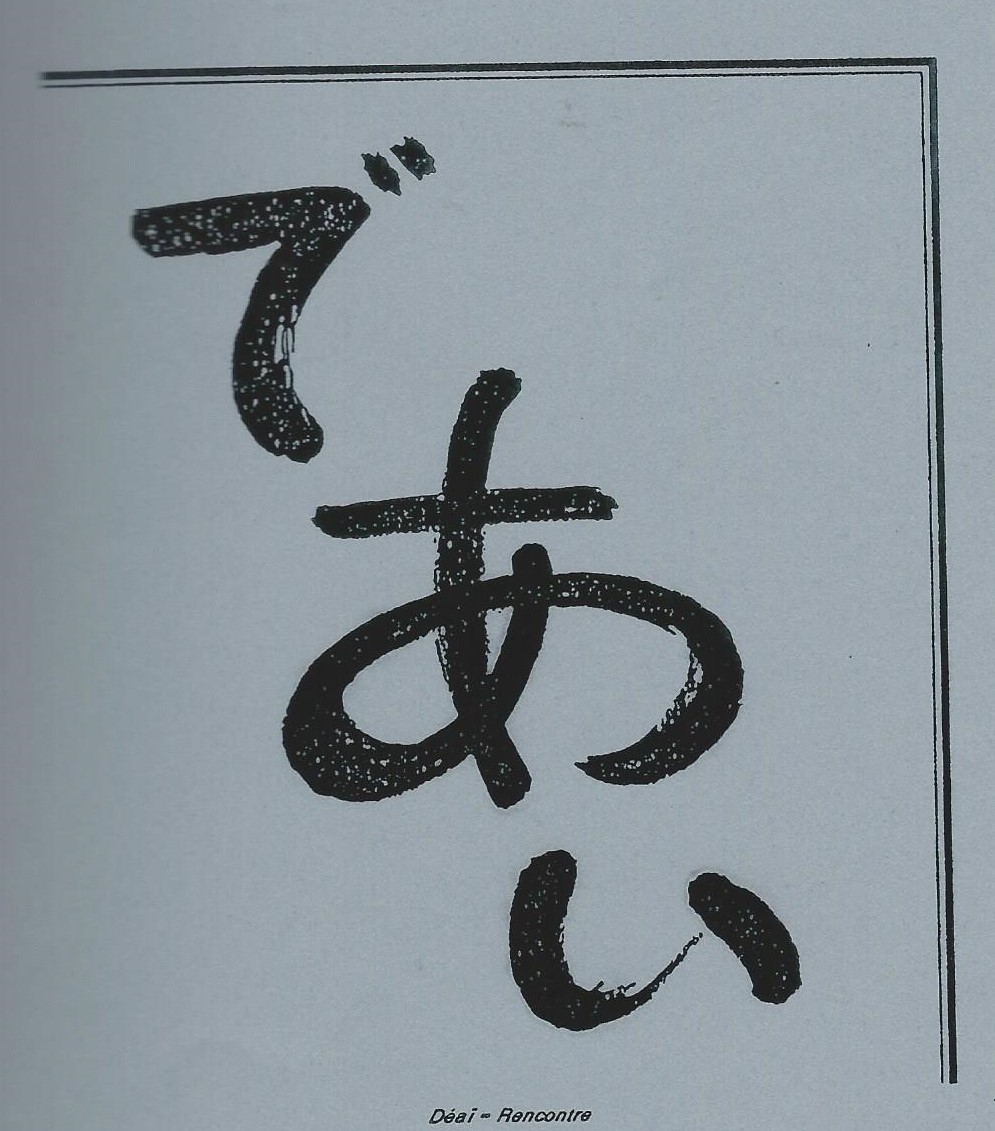 であい
Déaï = Rencontre